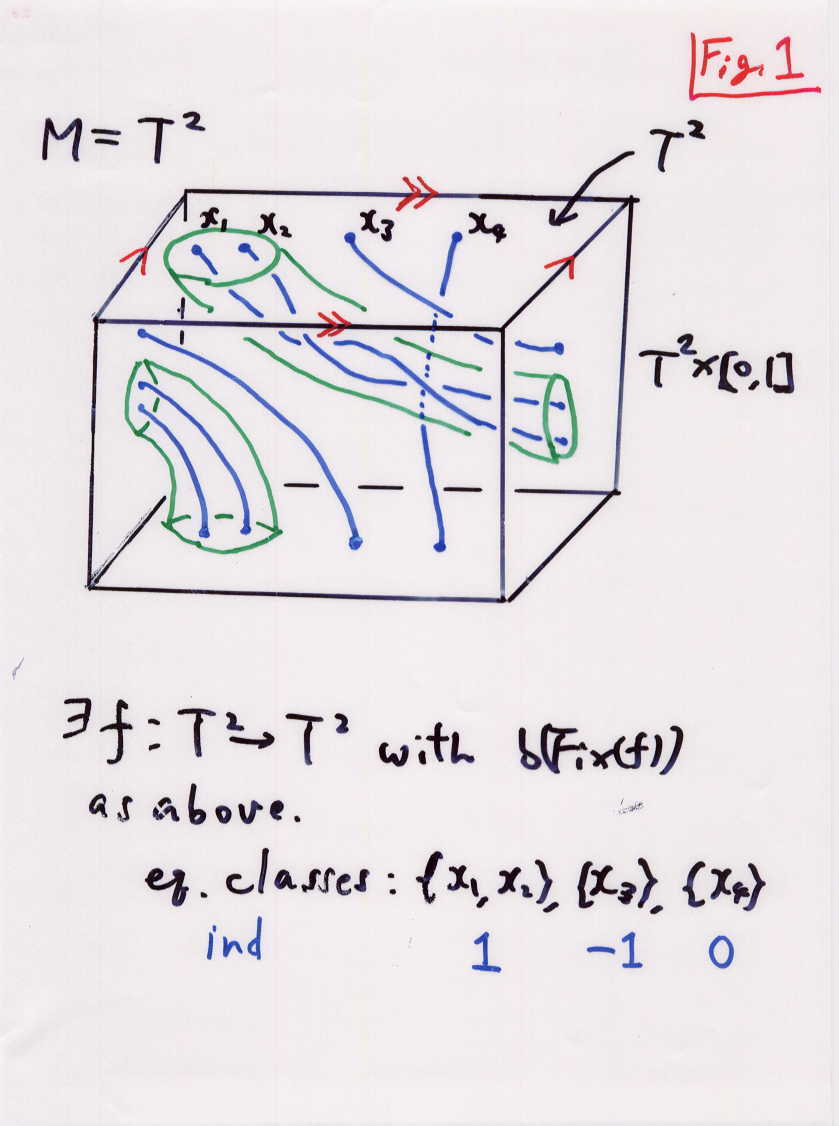 Fig. 1
M = T²
T²
x₁ x₂ x₃ x₄
T²×[0,1]
∃f : T² → T² with b(Fix(f))
as above.
eq. classes : {x₁, x₂}, {x₃}, {x₄}
ind 1 -1 0